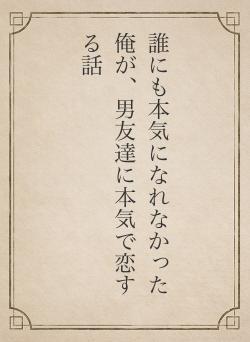 誰にも本気になれなかった
俺が、男友達に本気で恋す
る話